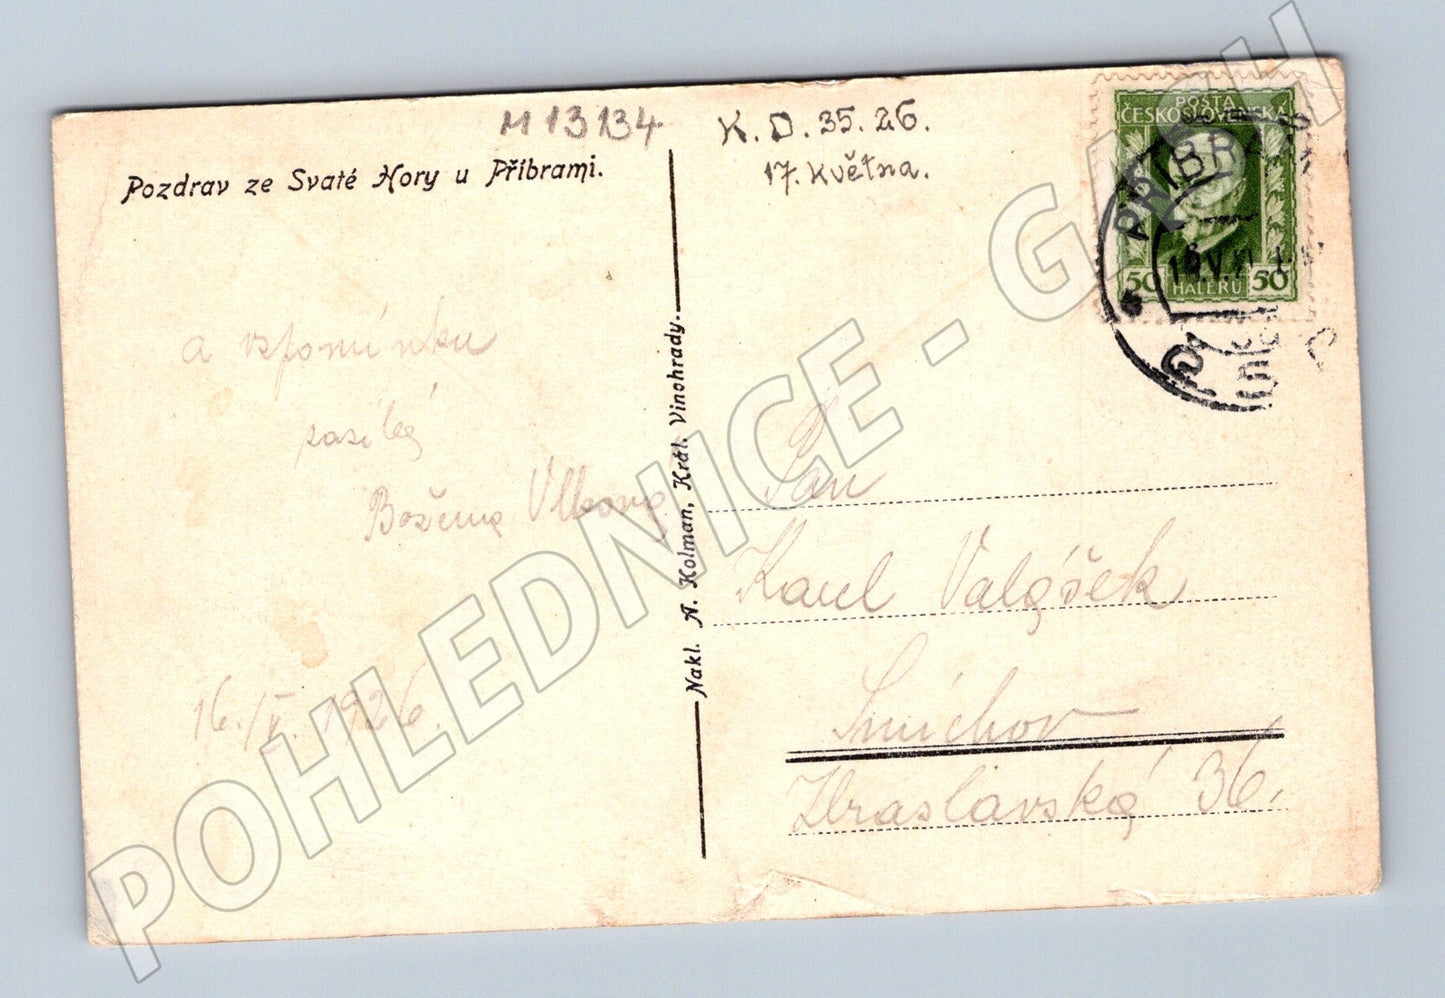 M 13134
K. D. 35. 26.
17. Května.
Pozdrav ze Svaté Hory u Příbrami.
POŠTA
ČESKOSLOVENSKÁ
50 HALÉŘŮ 50
PŘÍBRAM
a vzpomínku
zasílá
Božena Vlkova
16./V. 1926.
Nakl. A. Kolman, Král. Vinohrady.
Pan
Karel Valášek
Smíchov
Zbraslavská 36.
POHLEDNICE - GASH